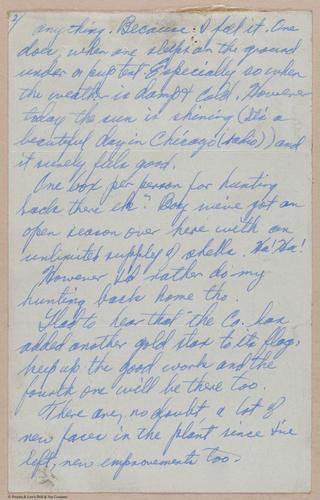 2/
anything. Because I feel it. One
does, when one sleeps on the ground
under a pup tent. Especially so when
the weather is damp & cold. However
today the sun is shining (It's a
beautiful day in Chicago (radio)) and
it surely feels good.
One box per person for hunting
back there eh? Boy we've got an
open season over here with an
unlimited supply of shells. Ha! Ha!
However I'd rather do my
hunting back home tho.
Glad to hear that the Co. has
added another gold star to its flag,
keep up the good work and the
fourth one will be there too.
There are, no doubt a lot of
new faces in the plant since I've
left, new improvements too.
© Russell, Burdsall & Ward Bolt & Nut Company